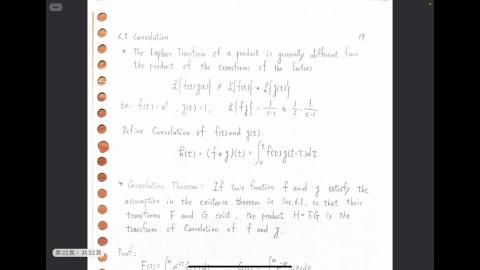 6.5 Convolution 19.
* The Laplace Transform of a product is generally different from
the product of the transforms of the factors.
L{f(t)g(t)} ≠ L{f(t)} * L{g(t)}
ex: f(t) = e^t , g(t) = 1, L{fg} = 1/(s-1) ≠ 1/s · 1/(s-1)
Define Convolution of f(t) and g(t)
h(t) = (f * g)(t) = ∫_0^t f(τ) g(t-τ)dτ
* Convolution Theorem : If two function f and g satisfy the
assumption in the existence theorem in Sec 6.1, so that their
transforms F and G exist, the product H = FG is the
transform of convolution of f and g.
Proof:
第22頁，共32頁